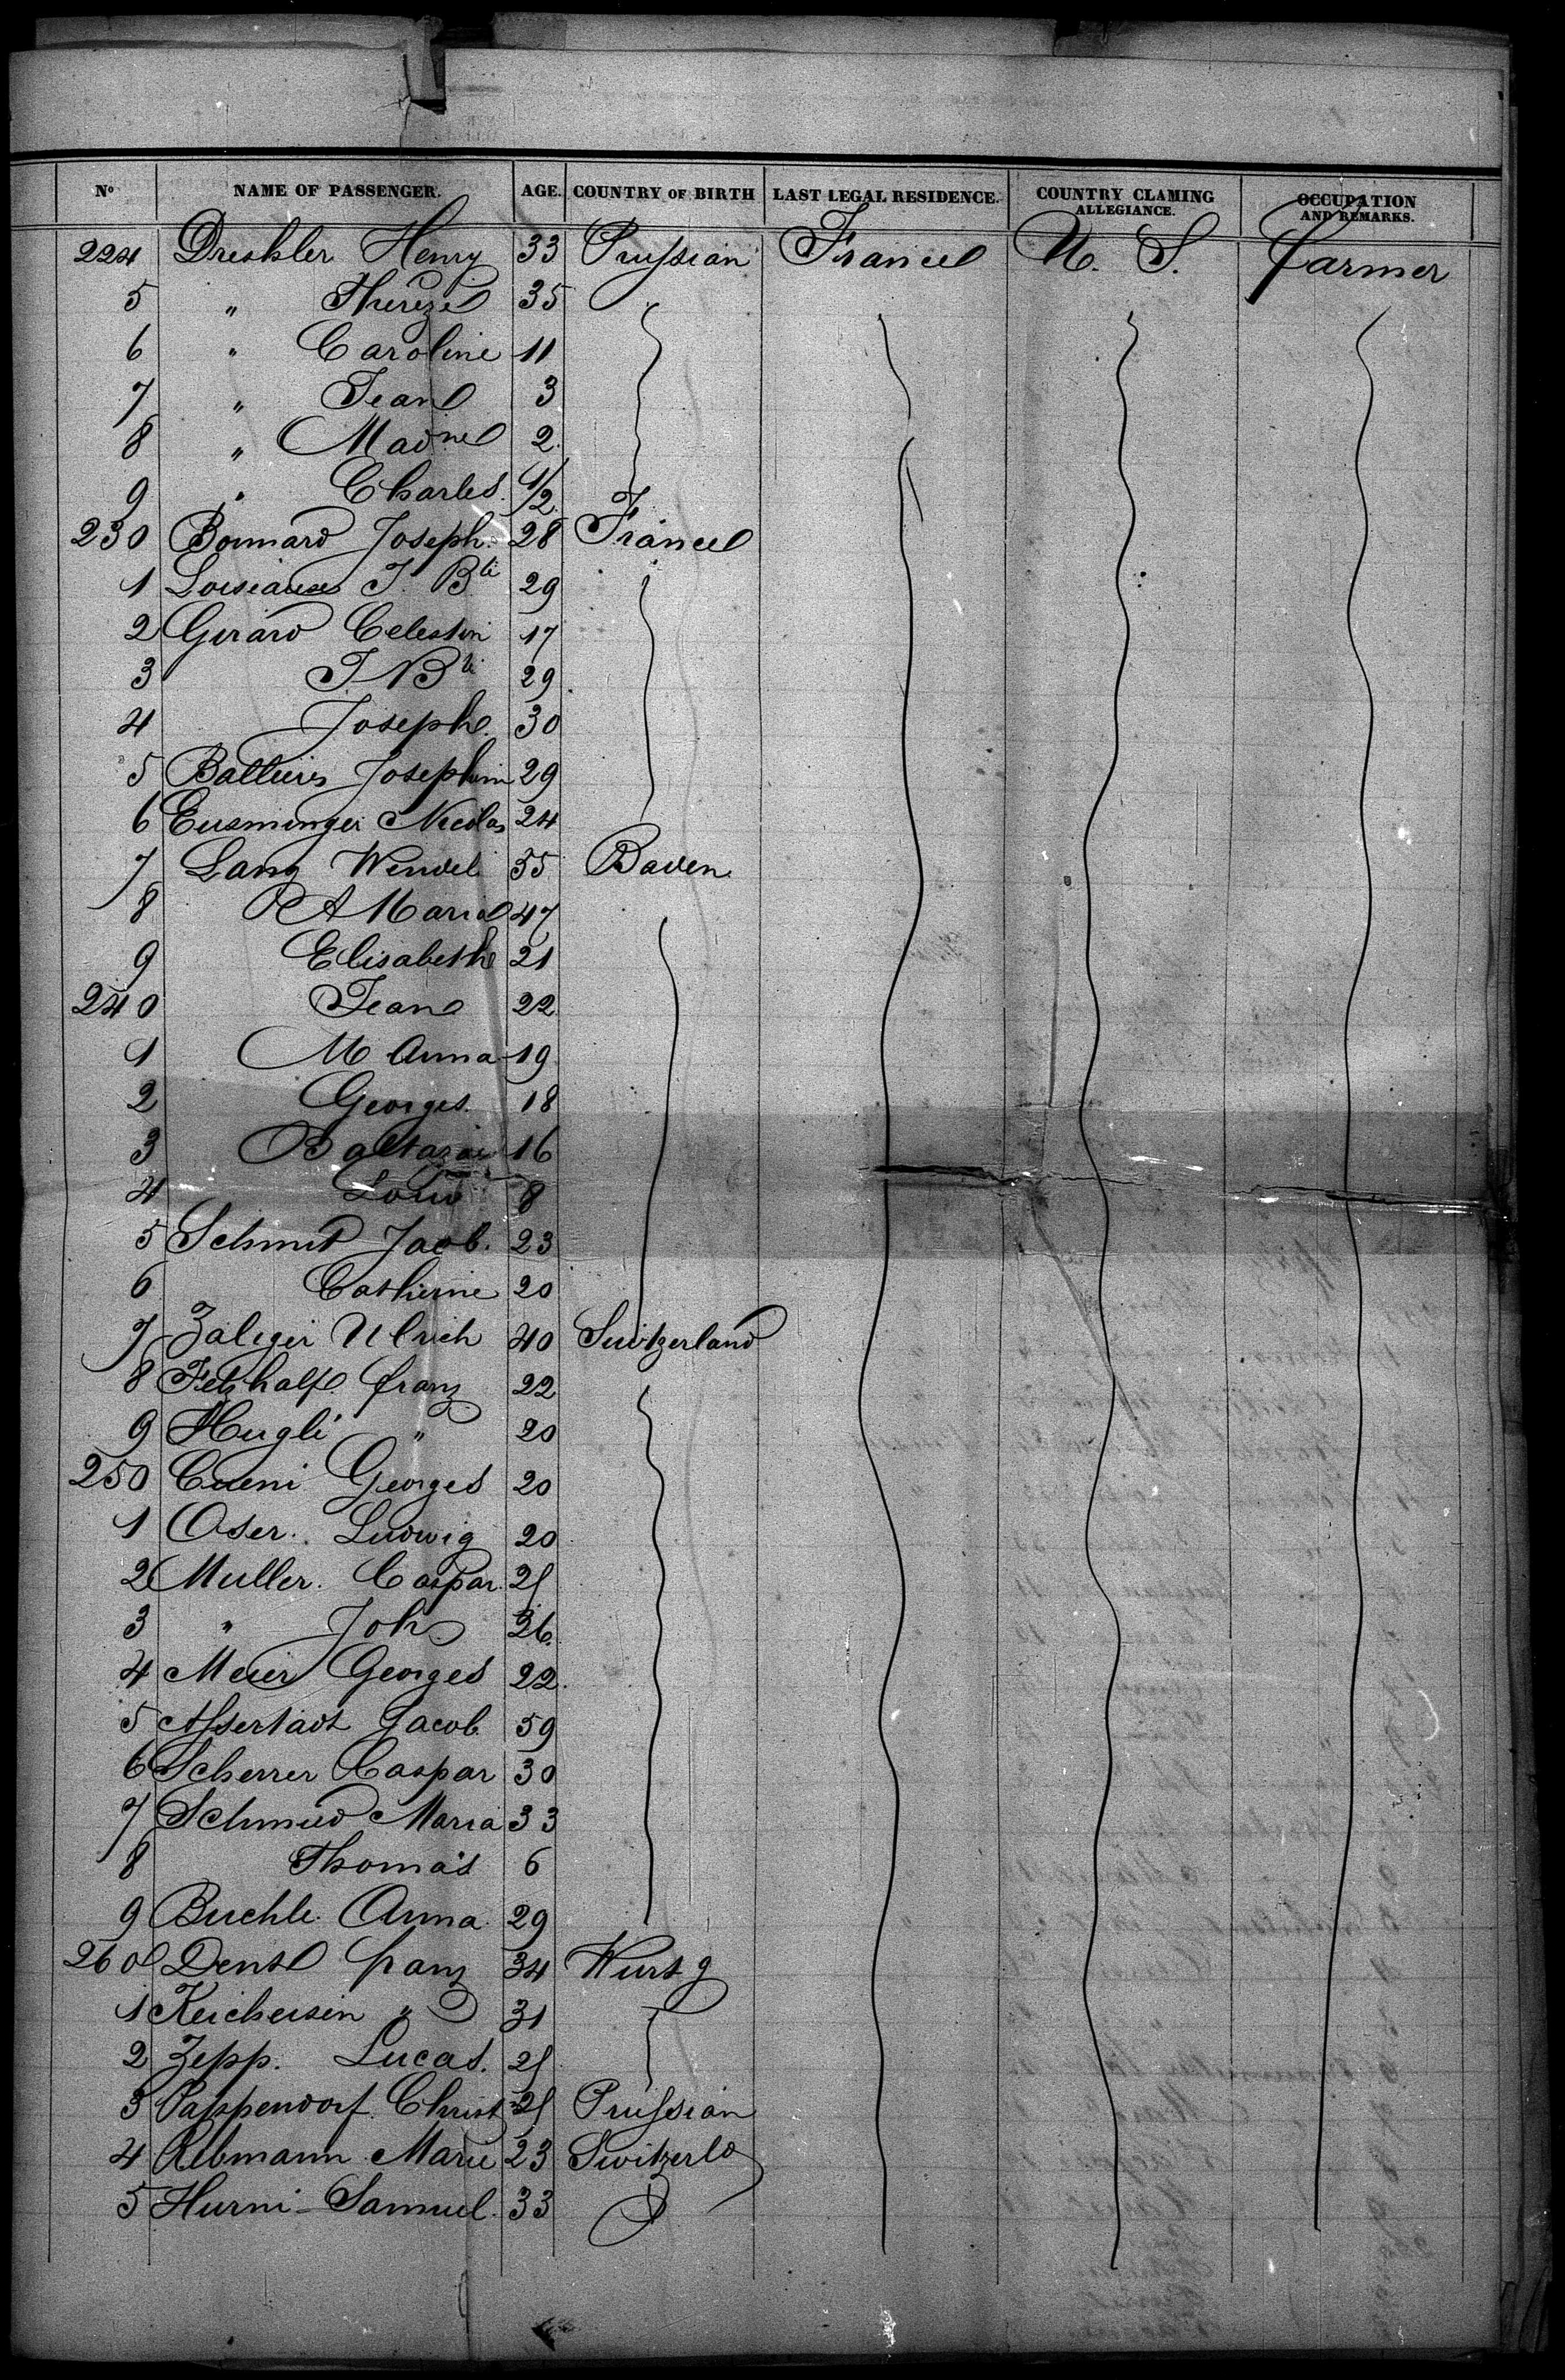 Nº NAME OF PASSENGER. AGE. COUNTRY OF BIRTH LAST LEGAL RESIDENCE. COUNTRY CLAMING ALLEGIANCE. OCCUPATION AND REMARKS.
224 Dreskler Henry 33 Prussian France U. S. Farmer
5 " Thereze 35
6 " Caroline 11
7 " Jean 3
8 " 2
9 " Charles 1/2
230 Bonnard Joseph. 28 France
1 Loiseaux J. Bte 29
2 Girard Celestin 17
3 J Bte 29
4 Joseph 30
5 Josephine 29
6 Nicolas 24
7 Lang Wendel 35 Baden
8 A Maria 47
9 Elisabeth 21
240 Jean 22
1 M Anna 19
2 Georges. 18
3 Baltazar 16
4 Louis 8
5 Schmid Jacob. 23
6 Catherine 20
7 Zaliger Ulrich 40 Switzerland
8 Fetzhalf franz 22
9 Hugli " 20
250 Cueni Georges 20
1 Oser. Ludwig 20
2 Muller. Caspar. 25
3 " Joh 26
4 Meier Georges 22
5 Jacob 59
6 Scherrer Caspar 30
7 Schmid Maria 33
8 Thomas 6
9 Buchle Anna 29
260 franz 34 Wurtg
1 " 31
2 Zepp. Lucas. 25
3 Pappendorf Christ 25 Prussian
4 Rebmann Marie 23 Switzerld
5 Hurni Samuel. 33